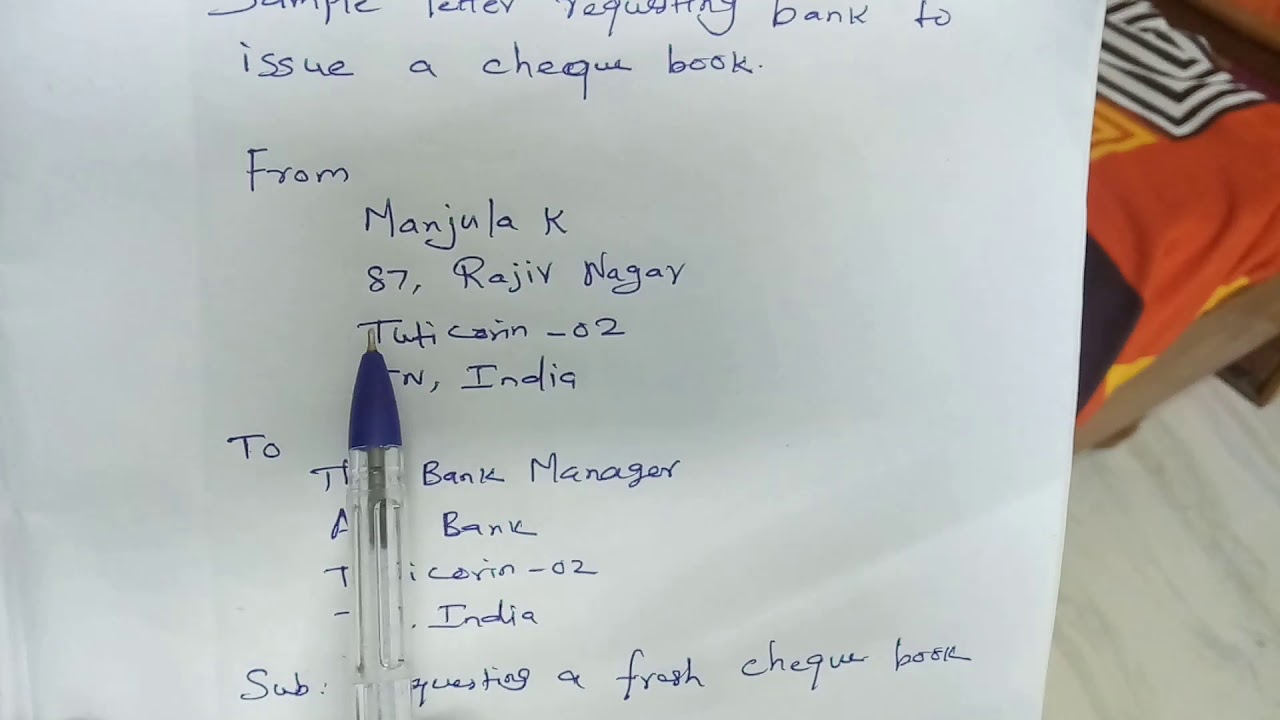 Sample letter requesting bank to
issue a cheque book.
From
Manjula K
87, Rajiv Nagar
Tuticorin -02
TN, India
To
Bank Manager
Bank
-02
India
Sub: a fresh cheque book